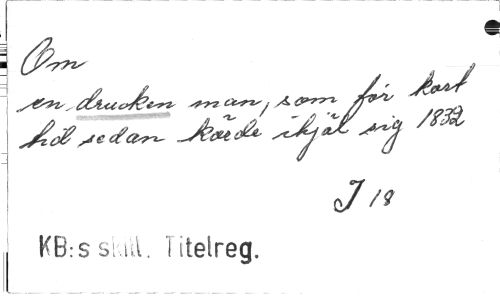 Om
en drucken man, som för kort
tid sedan körde ihjäl sig 1832
J 18
KB:s skill. Titelreg.